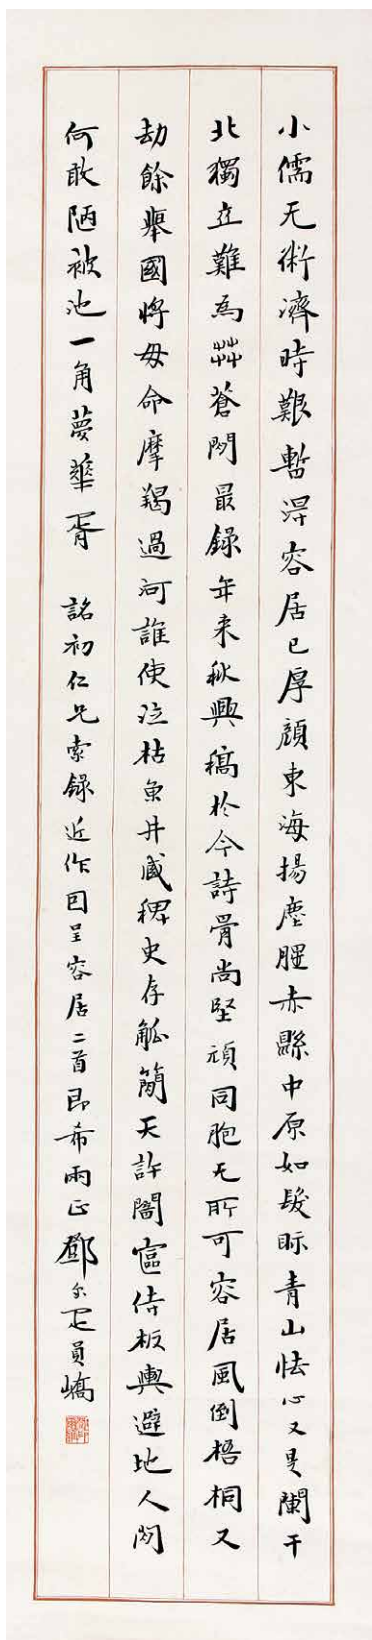 小儒无術濟時艱暫淂容居已厚顔東海揚塵腥赤縣中原如髮眎青山怯心又是闌干
北獨立難為茻蒼閒最録年来秋興稿於今詩骨尚堅頑同胞无所可容居風倒梧桐又
劫餘舉國將毋命摩羯過河誰使泣枯魚井咸稗史存觚簡天許闔宧侍板輿避地人閒
何敢陋被池一角夢華胥 詺初仁兄索録近作因呈容居二首即希兩正 鄧尔疋員嶠